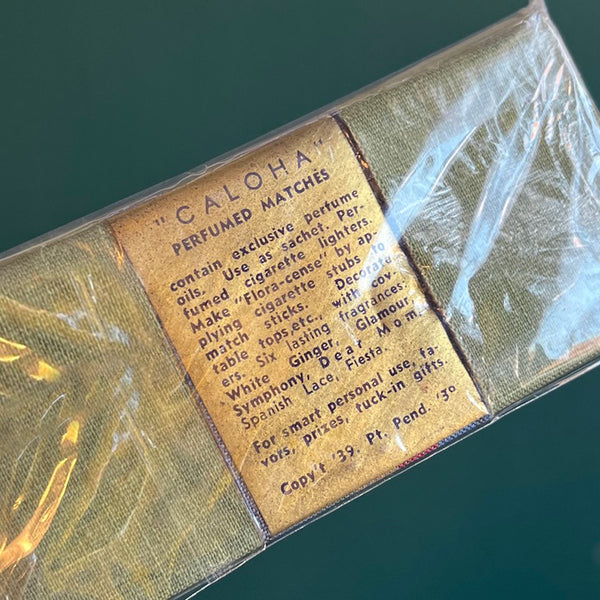 "CALOHA"
PERFUMED MATCHES
contain exclusive perfume
oils. Use as sachet. Per-
fumed cigarette lighters.
Make "Flora-cense" by ap-
plying cigarette stubs to
match sticks. Decorate
table tops etc., with cov-
ers. Six lasting fragrances:
White Ginger, Glamour,
Symphony, Dear Mom,
Spanish Lace, Fiesta.
For smart personal use, fa-
vors, prizes, tuck-in gifts.
Copy't '39. Pt. Pend. '39